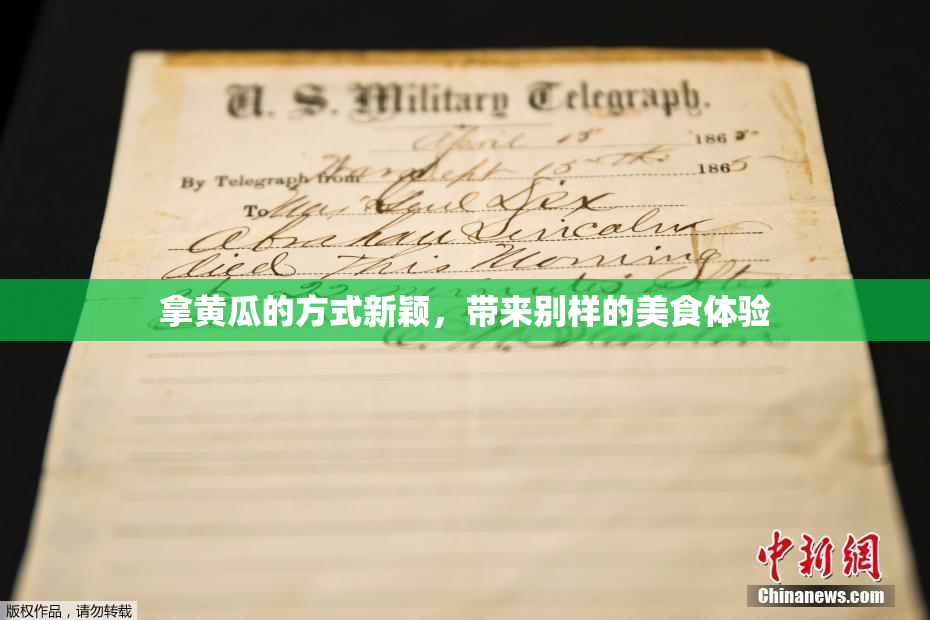 U. S. Military Telegraph.
April 15 1865
By Telegraph from War Dept 15th 1865
To Maj Genl Dix
Abraham Lincoln
died This Morning
at 22 minutes after
拿黄瓜的方式新颖，带来别样的美食体验
中新网
Chinanews.com
版权作品，请勿转载